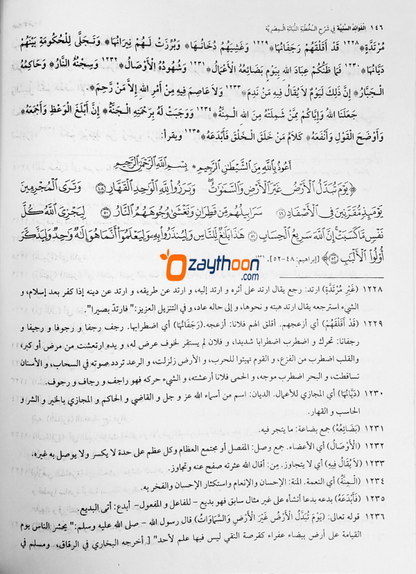 ١٤٦ الفوائد السنية في شرح الخطب النباتية المصرية
مُرْتَدَّةٍ* ١٢٢٨ قَدْ أَقْلَقَهُمْ رَجَفَانُهَا* ١٢٢٩ وَغَشِيَهُمْ دُخَانُهَا* وَبُرِّزَتْ لَهُمْ نِيرَانُهَا* وَتَجَلَّى لِلْحُكُومَةِ بَيْنَهُمْ
دَيَّانُهَا* ١٢٣٠ فَمَا ظَنُّكُمْ عِبَادَ اللهِ بِيَوْمٍ بَضَائِعُهُ الْأَعْمَالُ* ١٢٣١ وَشُهُودُهُ الْأَوْصَالُ* ١٢٣٢ وَسِجْنُهُ النَّارُ* وَحَاكِمُهُ
الْجَبَّارُ* إِنَّ ذَلِكَ لَيَوْمٌ لَا يُقَالُ فِيهِ مَنْ نَدِمَ* ١٢٣٣ وَلَا عَاصِمَ فِيهِ مِنْ أَمْرِ اللهِ إِلَّا مَنْ رَحِمَ*
جَعَلَنَا اللهُ وَإِيَّاكُمْ مِمَّنْ شَمِلَتْهُ مِنَ اللهِ الْمِنَّةُ* ١٢٣٤ وَوَجَبَتْ لَهُ بِرَحْمَتِهِ الْجَنَّةُ* إِنَّ أَبْلَغَ الْوَعْظِ وَأَجْمَعَهُ*
وَأَوْضَحَ الْقَوْلِ وَأَنْفَعَهُ* كَلَامُ مَنْ خَلَقَ الْخَلْقَ فَأَبْدَعَهُ* ١٢٣٥ ويقرأ:
أَعُوذُ بِاللَّهِ مِنَ الشَّيْطَانِ الرَّجِيمِ * بِسْمِ اللَّهِ الرَّحْمَنِ الرَّحِيمِ
﴿يَوْمَ تُبَدَّلُ الْأَرْضُ غَيْرَ الْأَرْضِ وَالسَّمَاوَاتُ وَبَرَزُوا لِلَّهِ الْوَاحِدِ الْقَهَّارِ ٤٨ وَتَرَى الْمُجْرِمِينَ
يَوْمَئِذٍ مُقَرَّنِينَ فِي الْأَصْفَادِ ٤٩ سَرَابِيلُهُمْ مِنْ قَطِرَانٍ وَتَغْشَى وُجُوهَهُمُ النَّارُ ٥٠ لِيَجْزِيَ اللَّهُ كُلَّ
نَفْسٍ مَا كَسَبَتْ إِنَّ اللَّهَ سَرِيعُ الْحِسَابِ ٥١ هَذَا بَلَاغٌ لِلنَّاسِ وَلِيُنْذَرُوا بِهِ وَلِيَعْلَمُوا أَنَّمَا هُوَ إِلَهٌ وَاحِدٌ وَلِيَذَّكَّرَ
أُولُو الْأَلْبَابِ ٥٢﴾ [إبراهيم: ٤٨-٥٢]. ١٢٣٦
Ozaythoon.com
١٢٢٨ (غَيْرَ مُرْتَدَّةٍ) ارتد: رجع يقال ارتد على أثره و ارتد إليه، و ارتد عن طريقه، و ارتد عن دينه إذا كفر بعد إسلام، و
الشيء استرجعه يقال ارتد هبته و نحوها، و إلى حاله عاد، و في التنزيل العزيز: "فارتدّ بصيرا".
١٢٢٩ (قَدْ أَقْلَقَهُمْ) أي أزعجهم. أقلق الهم فلانا: أزعجه. (رَجَفَانُهَا) أي اضطرابها. رجف رجفا و رجوفا و رجيفا و
رجفانا: تحرك و اضطرب اضطرابا شديدا، و فلان لم يستقر لخوف عرض له، و يده ارتعشت من مرض أو كبر،
والقلب اضطرب من الفزع، و القوم تهيئوا للحرب، و الأرض زلزلت، و الرعد تردد صوته في السحاب، و الأسنان
تساقطت، و البحر اضطرب موجه، و الحمى فلانا أرعشته، و الشيء حركه فهو راجف و رجاف و رجوف.
١٢٣٠ (دَيَّانُهَا) أي المجازي للأعمال. الديان: اسم من أسماء الله عز و جل و القاضي و الحاكم و المجازي بالخير و الشر و
الحاسب و القهار.
١٢٣١ (بَضَائِعُهُ) جمع بضاعة: ما يتجر فيه.
١٢٣٢ (الْأَوْصَالُ) أي الأعضاء. جمع وصل: المفصل أو مجتمع العظام وكل عظم على حدة لا يكسر ولا يوصل به غيره.
١٢٣٣ (لَا يُقَالُ فِيهِ) لا يتجاوز. من: أقال الله عثرته صفح عنه وتجاوز.
١٢٣٤ (الْمِنَّةُ) أي النعمة. المنة: الإحسان والإنعام واستكثار الإحسان والفخر به.
١٢٣٥ (فَأَبْدَعَهُ) بدعه بدعا أنشأه على غير مثال سابق فهو بديع – للفاعل و المفعول– أبدع: أتى البديع.
١٢٣٦ قوله تعالى: (يَوْمَ تُبَدَّلُ الْأَرْضُ غَيْرَ الْأَرْضِ وَالسَّمَاوَاتُ) قال رسول الله – صلى الله عليه وسلم: "يحشر الناس يوم
القيامة على أرض بيضاء عفراء كقرصة النقي ليس فيها علم لأحد" [ أخرجه البخاري في الرقاق، ومسلم في